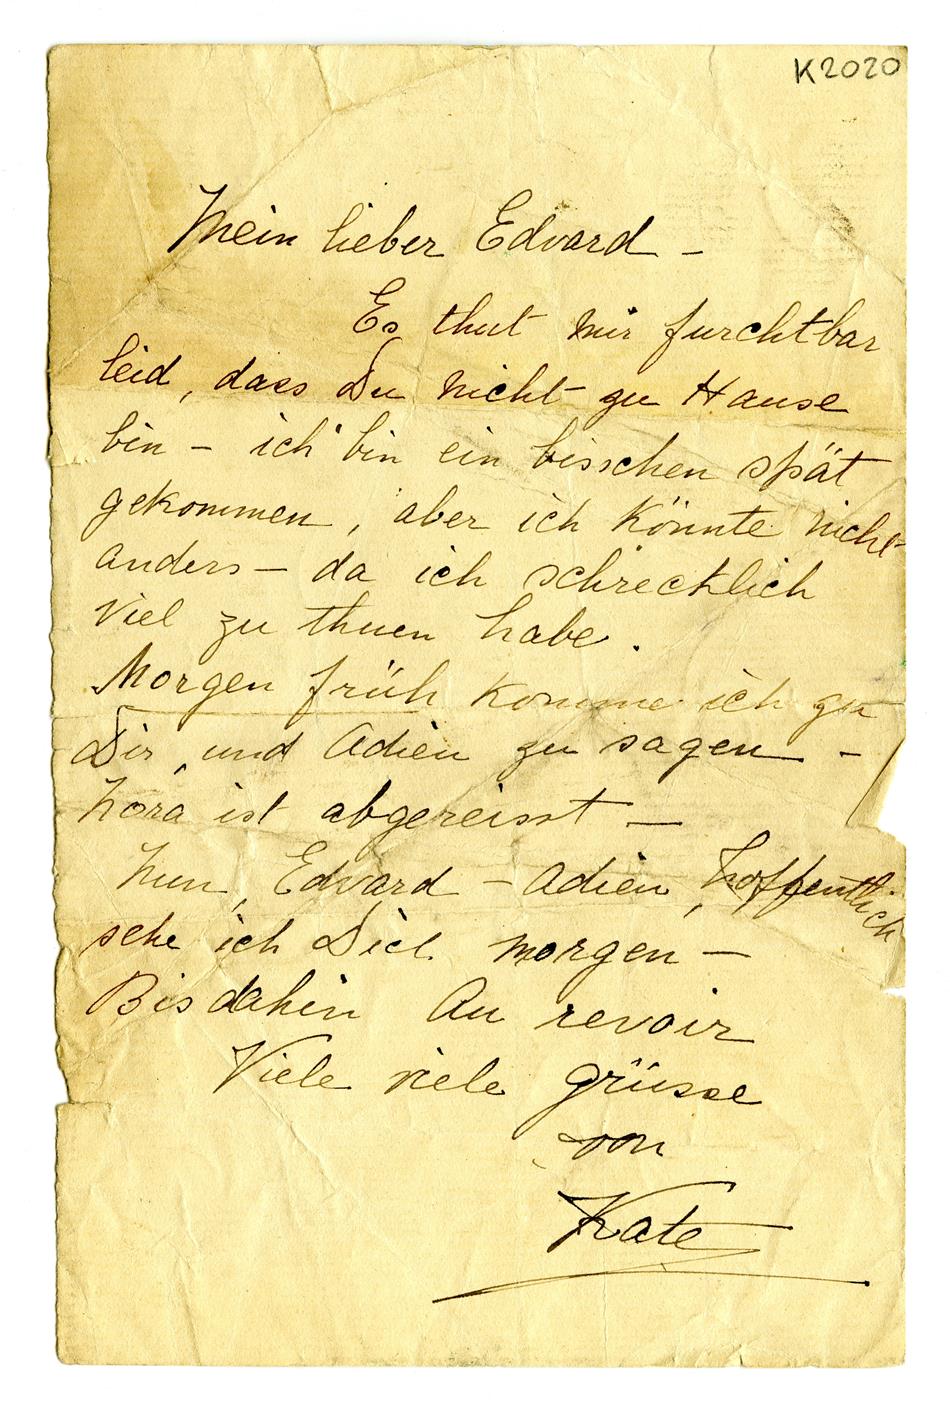 K2020
Mein lieber Edvard –
Es thut mir furchtbar
leid, dass Du nicht zu Hause
bin – ich bin ein bisschen spät
gekommen, aber ich könnte nicht
anders – da ich schrecklich
viel zu thuen habe.
Morgen früh komme ich zu
Dir, und Adieu zu sagen –
Lora ist abgereisst –
Nun, Edvard – Adieu, hoffentlich
sehe ich Dich morgen –
Bis dahin Au revoir
Viele viele grüsse
von
Kate